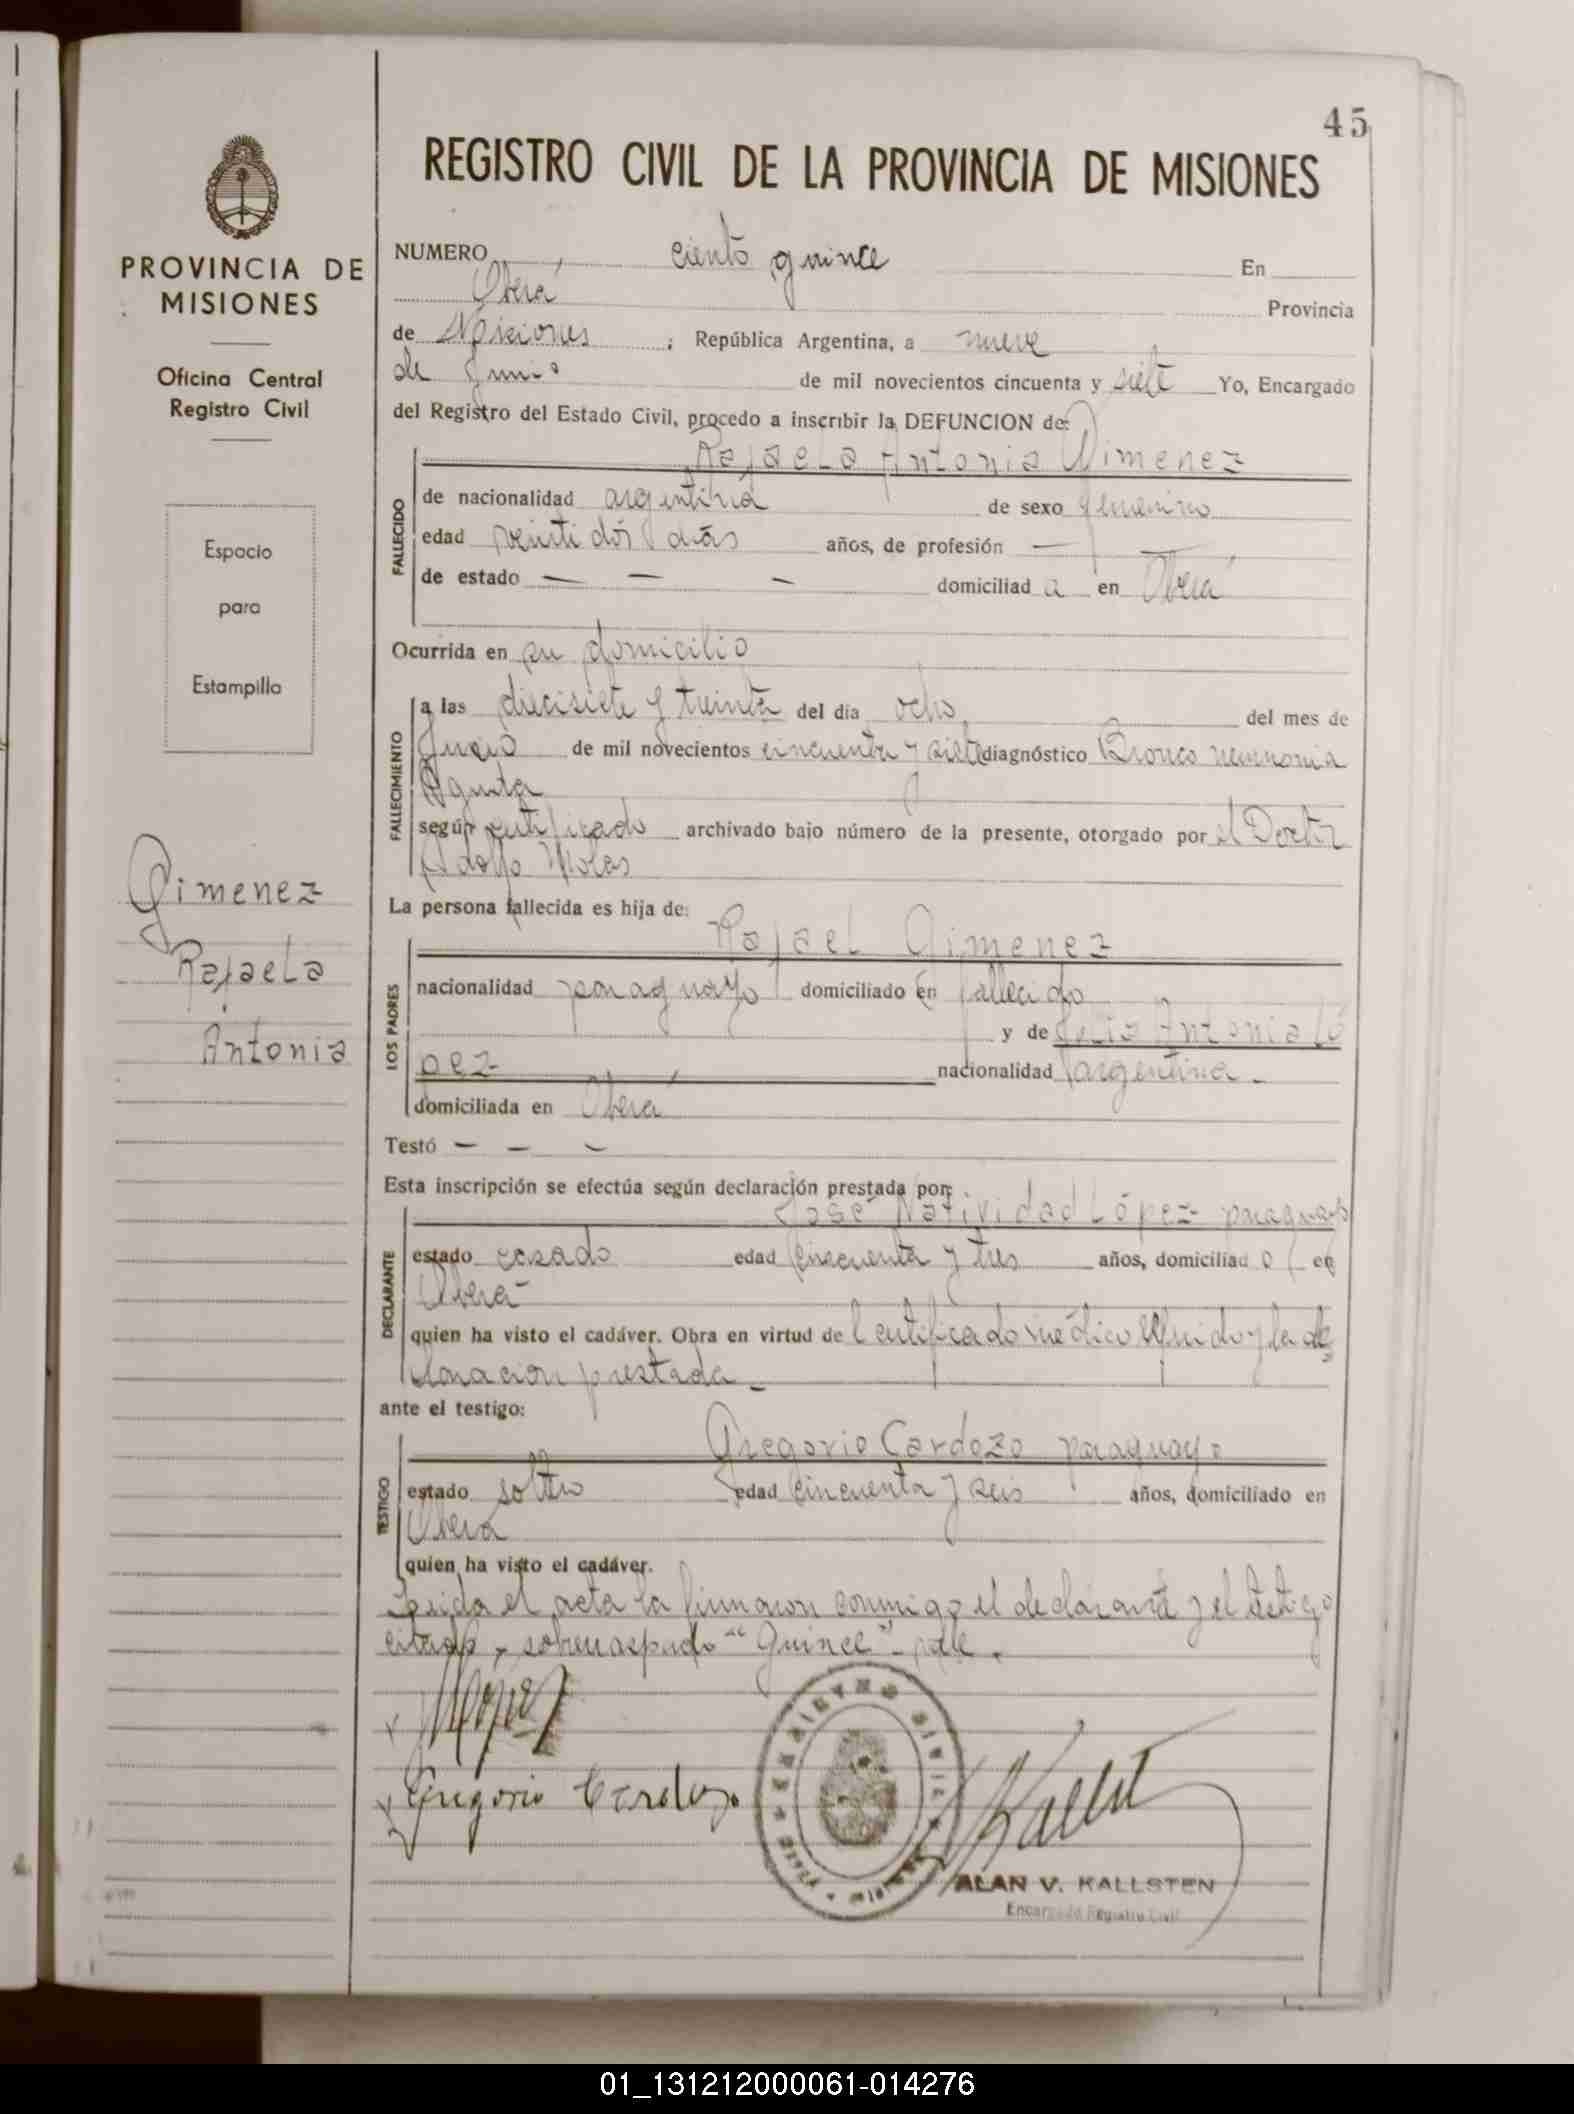 45
REGISTRO CIVIL DE LA PROVINCIA DE MISIONES
PROVINCIA DE
MISIONES
Oficina Central
Registro Civil
Espacio
para
Estampilla
Gimenez
Rafaela
Antonia
NUMERO ciento quince En
Oberá Provincia
de Misiones ; República Argentina, a nueve
de Junio de mil novecientos cincuenta y siete Yo, Encargado
del Registro del Estado Civil, procedo a inscribir la DEFUNCION de:
Rafaela Antonia Gimenez
FALLECIDO
de nacionalidad argentina de sexo femenino
edad veintidós días años, de profesión — —
de estado — — — domiciliad a en Oberá
Ocurrida en su domicilio
FALLECIMIENTO
a las diecisiete y treinta del día ocho del mes de
Junio de mil novecientos cincuenta y siete diagnóstico Bronco neumonia
Aguda
según certificado archivado bajo número de la presente, otorgado por el Doctor
Adolfo Molas
La persona fallecida es hija de:
Rafael Gimenez
LOS PADRES
nacionalidad paraguayo domiciliado en fallecido
y de Antonia Ló
pez nacionalidad argentina.-
domiciliada en Oberá
Testó — — —
Esta inscripción se efectúa según declaración prestada por:
José Natividad López paraguayo
DECLARANTE
estado casado edad cincuenta y tres años, domiciliad o en
Oberá
quien ha visto el cadáver. Obra en virtud del certificado médico referido y la de
claracion prestada.-
ante el testigo:
Gregorio Cardozo paraguayo
TESTIGO
estado soltero edad cincuenta y seis años, domiciliado en
Oberá
quien ha visto el cadáver.
Leida el acta la firmaron conmigo el declarante y el testigo
citado, sobreraspado "Quince" - vale.
Gregorio Cardozo
Kallst
ALAN V. KALLSTEN
Encargado Registro Civil
01_131212000061-014276